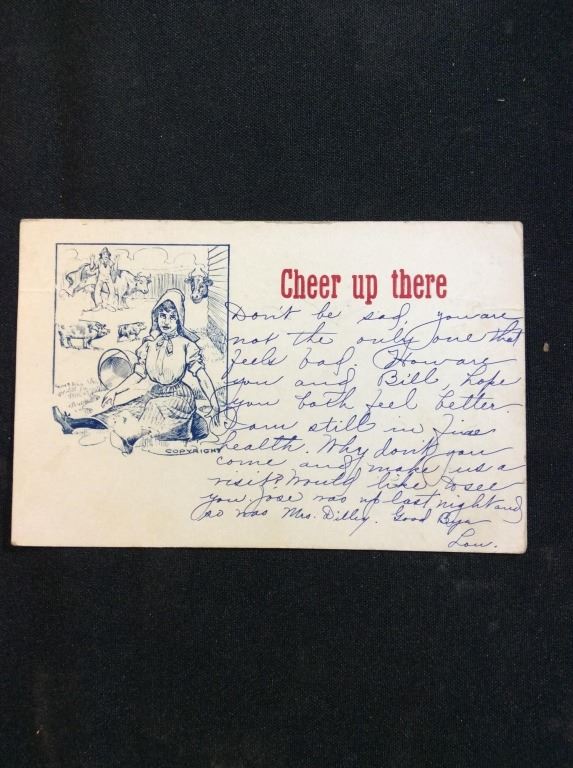 Cheer up there
Don't be sad, you are
not the only one that
feels bad. How are
you and Bill, hope
you both feel better.
I am still in fine
health. Why don't you
come and make us a
visit? Would like to see
you. Jose was up last night and
so was Mrs. Dilley. Good Bye
Lou.
COPYRIGHT